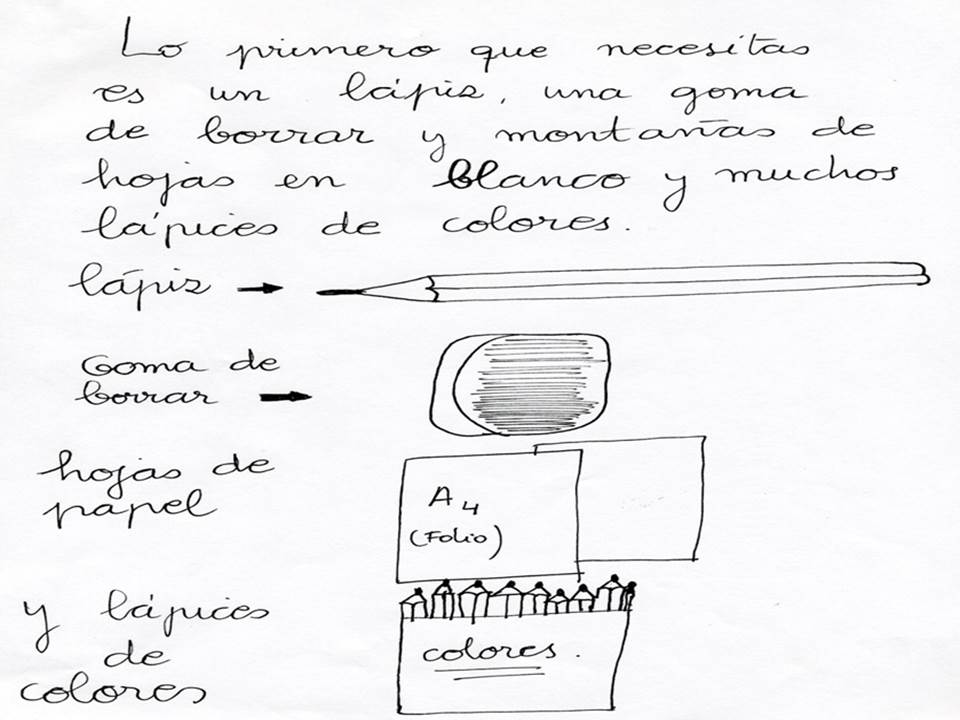 Lo primero que necesitas
es un lápiz, una goma
de borrar y montañas de
hojas en blanco y muchos
lápices de colores.
lápiz
Goma de
borrar
hojas de
papel
A4
(Folio)
y lápices
de
colores
colores.